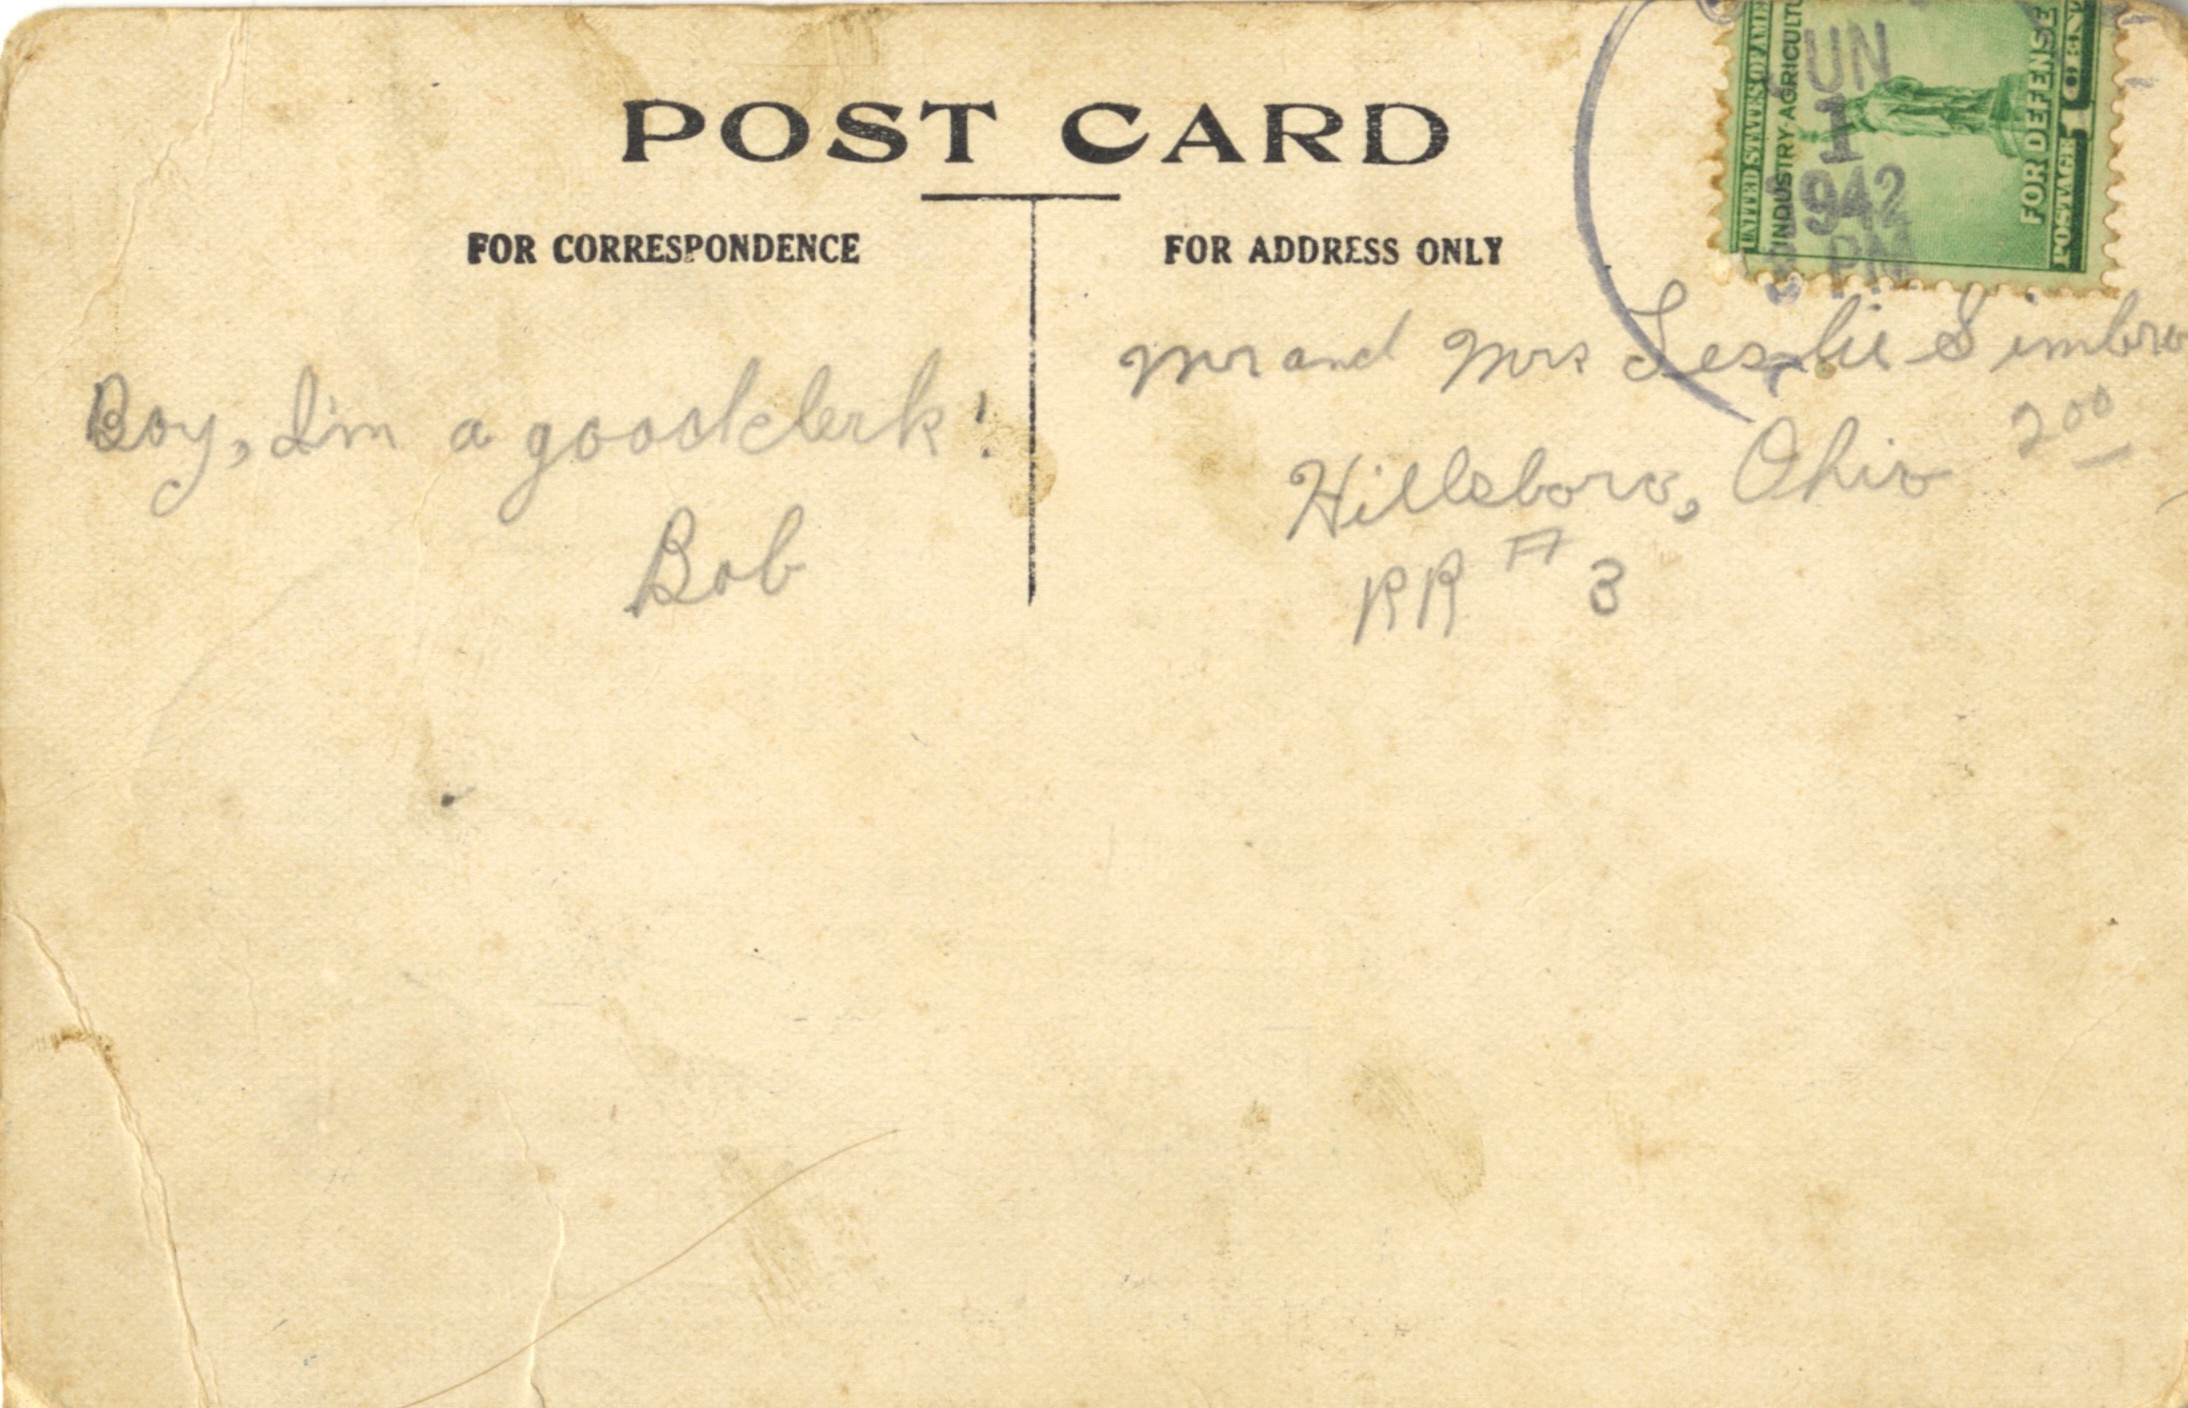 POST CARD
FOR CORRESPONDENCE
FOR ADDRESS ONLY
UNITED STATES OF AME
INDUSTRY AGRICULTU
FOR DEFENSE
POSTAGE 1 CENT
JUN
1
1942
PM
Boy, I'm a good clerk!
Bob
Mr and Mrs Leslie Simbro
Hillsboro, Ohio
2 00
RR # 3